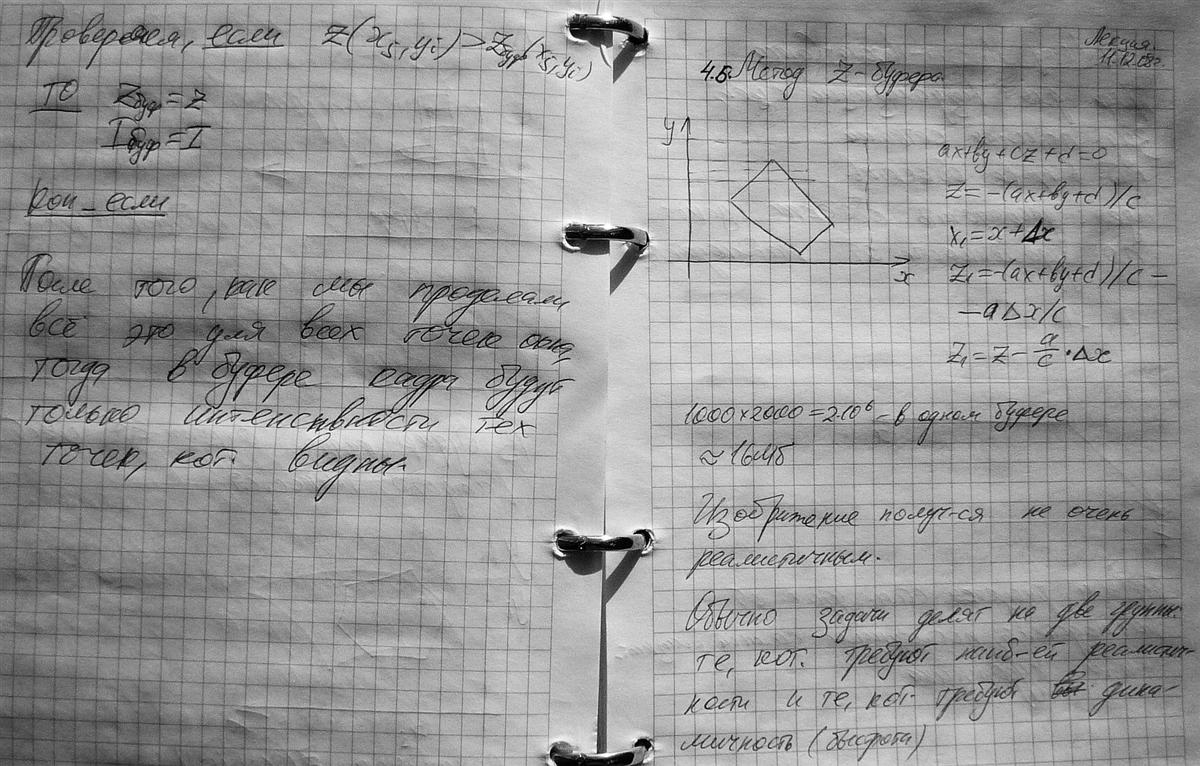 Проверяем, если z(x5, yi) > zбуф(x5, yi)
ТО zбуф = z
Iбуф = I
кон_если
После того, как мы проделали
всё это для всех точек окна,
тогда в буфере кадра будут
только интенсивности тех
точек, кот. видны.
Лекция.
11.12.08г.
4.6. Метод z-буфера
y
x
ax+by+cz+d=0
z=-(ax+by+d)/c
x₁=x+Δx
z₁=-(ax+by+d)/c -
-aΔx/c
z₁=z-a/c·Δx
1000×2000=2·10⁶ - в одном буфере
≈16Мб
Изображение получ-ся не очень
реалистичным.
Обычно задачи делят на две группы:
те, кот. требуют наиб-ей реалистич-
ности и те, кот. требуют дина-
мичность (быстрота)